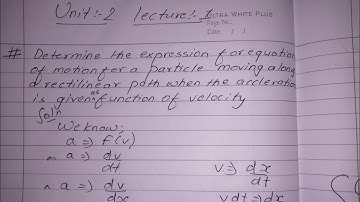 Unit:-2 lecture:-1
ULTRA WHITE PLUS
Page No.:
Date: / /
# Determine the expression for equation
of motion for a particle moving along
a rectilinear path when the accleration
is given as function of velocity
Solⁿ
We know,
a => f(v)
a => dv/dt v => dx/dt
a => dv/dx vdt => dx